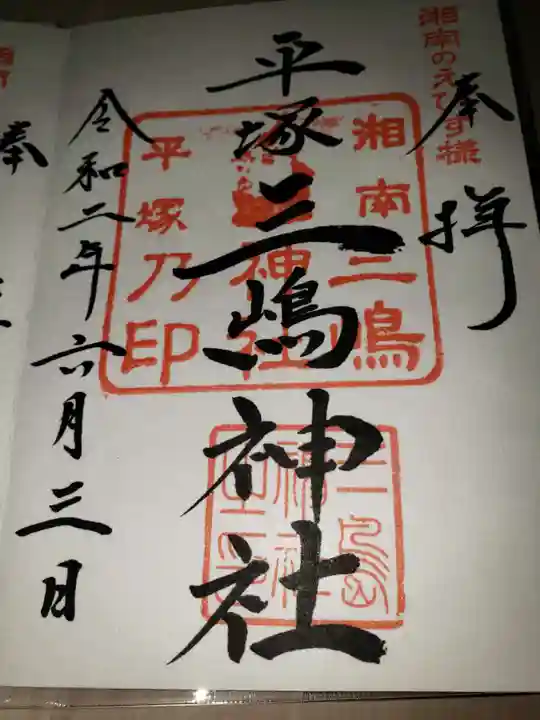 湘南のえびす様
奉拝
平塚三嶋神社
湘南三嶋
神社
平塚乃印
三島
神社
令和二年六月三日
奉